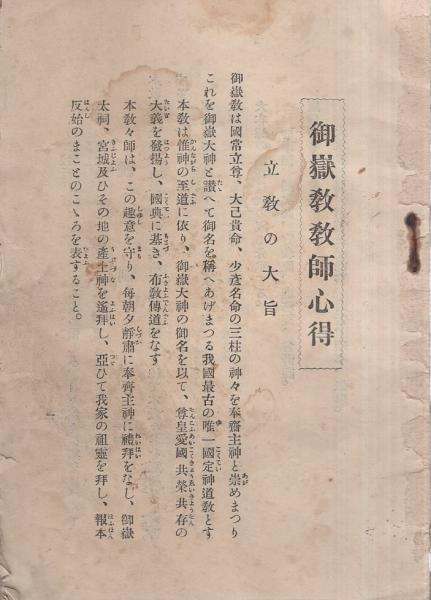 御嶽教教師心得
立教の大旨
御嶽教は國常立尊、大己貴命、少彦名命の三柱の神々を奉齋主神と崇めまつり
これを御嶽大神と讃へて御名を稱へあげまつる我國最古の唯一國定神道教とす
本教は惟神の至道に依り、御嶽大神の御名を以て、尊皇愛國共榮共存の
大義を發揚し、國典に基き、布教傳道をなす
本教々師は、この趣意を守り、每朝夕靜肅に奉齊主神に禮拜をなし、御嶽
太祠、宮城及ひその地の產土神を遙拜し、亞ひて我家の祖靈を拜し、報本
反始のまことのこゝろを表すること。